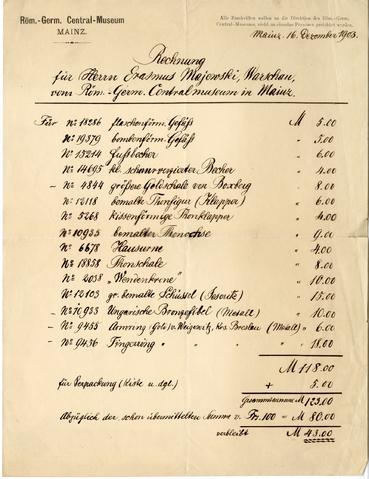 Röm.-Germ. Central-Museum
MAINZ.
Alle Zuschriften wolle man an die Direktion des Röm.-Germ.
Central-Museums, nicht an einzelne Personen gerichtet werden.
Mainz, 16. Dezember 1903.
Rechnung
für Herrn Erasmus Majewski, Warschau,
vom Röm.-Germ. Centralmuseum in Mainz.
Für No 18286 flaschenförm. Gefäß M 5.00
No 19379 bombenförm. Gefäß " 5.00
No 13214 Fußbecher " 6.00
No 14695 kl. schnurverzierter Becher " 4.00
- No 4844 größere Goldschale von Boxberg " 8.00
No 12118 bemalte Tonfigur (Klapper) " 6.00
No 5268 kissenförmige Thonklapper " 4.00
No 10935 bemalter " 9.00
No 6678 Hausurne " 4.00
No 18858 Thonschale " 8.00
No 2038 "Wendenkrone" " 10.00
No 12103 gr. bemalte Schüssel " 15.00
- No 10923 Ungarische Bronzefibel (Metall) " 10.00
- No 9435 Armring Breslau (Metall) " 6.00
- No 9436 Fingerring " " " 18.00
M 118.00
für Verpackung (Kiste u. dgl.) + 5.00
Gesammtsumme M 123.00
Abzüglich der schon übermittelten Summe v. Fr. 100 = M 80.00
verbleibt M 43.00